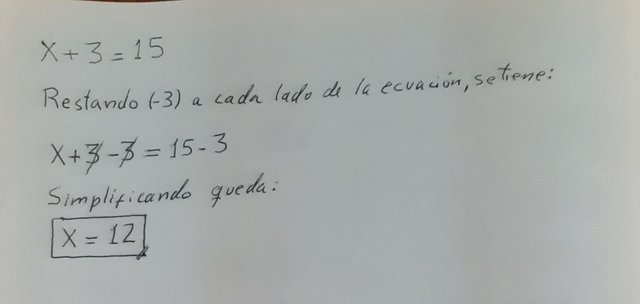 X + 3 = 15
Restando (-3) a cada lado de la ecuación, se tiene:
X + 3 - 3 = 15 - 3
Simplificando queda:
X = 12